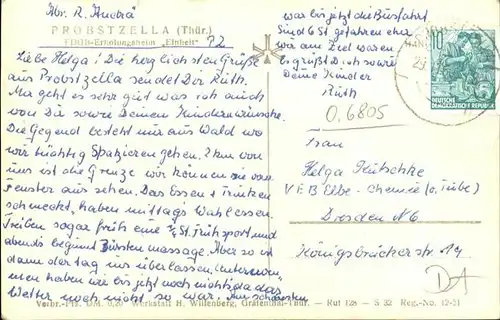 Abs. R. Andrä
PROBSTZELLA (Thür.)
FDGB-Erholungsheim "Einheit"
Liebe Helga! Die herzlichsten Grüße
aus Probstzella sendet Dir Ruth.
Mir geht es sehr gut was ich auch
von Dir sowie Deinen Kindern wünsche.
Die Gegend besteht nur aus Wald wo
wir tüchtig Spazieren gehen. 2 km von
uns ist die Grenze wir können die vom
Fenster aus sehen. Das Essen + Trinken
schmeckt, haben mittags Wahlessen.
Treiben sogar früh eine 3/4 St. Frühsport und
abends beginnt Bürstenmassage. Aber so ist
dann der Tag uns überlassen. Unternom-
men haben wir bis jetzt noch nichts da das
Wetter noch nicht so war. Am schönsten
war bis jetzt die Busfahrt
Sind 6 St. gefahren ehe
wir am Ziel waren
Es grüßt Dich sowie
Deine Kinder
Ruth
10
DEUTSCHE
DEMOKRATISCHE REPUBLIK
0.6805
Frau
Helga
VEB Elbe-Chemie
Dresden N6
Königsbrücker str. 14
Verbr.-Prs. DM. 0,20 Werkstatt H. Willenberg, Gräfenthal-Thür. — Ruf 128 — S 32 Reg.-No. 12-21